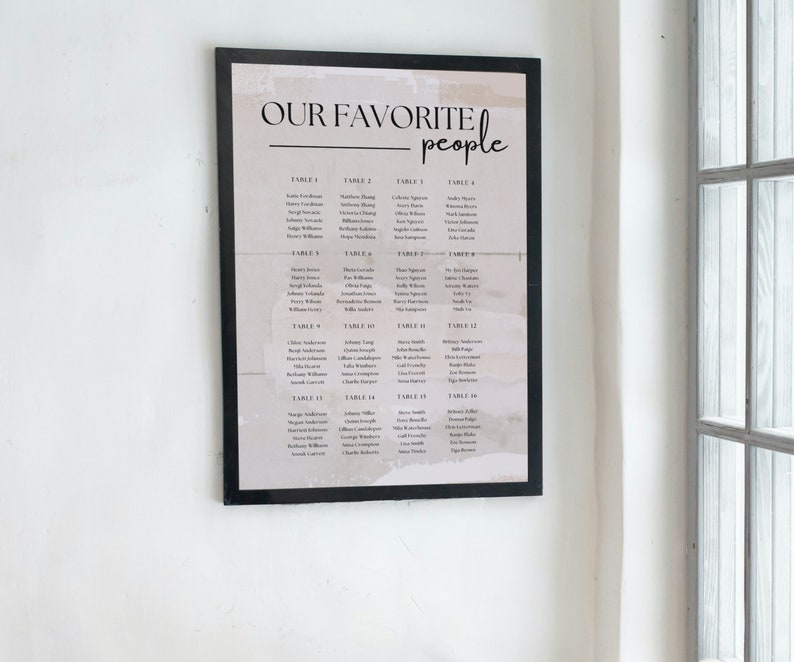 OUR FAVORITE
people
TABLE 1
Katie Fordman
Harry Fordman
Sergi Novacic
Johnny Novacic
Saige Williams
Henry Williams
TABLE 2
Matthew Zhang
Anthony Zhang
Victoria Chiang
Billiana Jones
Bethany Kalnins
Hope Mendosa
TABLE 3
Celeste Nguyen
Avery Davis
Olivia Wilson
Ken Nguyen
Angelo Guitson
Koa Sampson
TABLE 4
Andry Myers
Winona Byers
Mark Jamison
Victor Johnson
Lisa Gerada
Zeke Haven
TABLE 5
Henry Jones
Harry Jones
Sergi Yolanda
Johnny Yolanda
Perry Wilson
William Henry
TABLE 6
Theia Gerada
Pax Williams
Olivia Paige
Jonathan Jones
Bernadette Benson
Willa Anders
TABLE 7
Thao Nguyen
Avery Nguyen
Kelly Wilson
Yenna Nguyen
Barry Harrison
Mia Sampson
TABLE 8
My-Jyn Harper
Jaime Chastain
Jeremy Waters
Toby Vy
Noah Vu
Minh Vu
TABLE 9
Chloe Anderson
Benji Anderson
Harriett Johnson
Mila Hearst
Bethany Williams
Anouk Garrett
TABLE 10
Johnny Tang
Quinn Joseph
Lillian Candalepas
Talia Wimbers
Anna Crompton
Charlie Harper
TABLE 11
Steve Smith
John Bonello
Milo Waterhouse
Gail Frenchy
Lisa Everett
Anna Harvey
TABLE 12
Britney Anderson
Billi Paige
Elvis Letterman
Banjo Blake
Zoe Bosson
Tiga Borletto
TABLE 13
Marge Anderson
Megan Anderson
Harriett Johnson
Steve Hearst
Bethany Williams
Anouk Garrett
TABLE 14
Johnny Miller
Quinn Joseph
Lillian Candalepas
George Wimbers
Anna Crompton
Charlie Roberts
TABLE 15
Steve Smith
Dave Bonello
Milo Waterhouse
Gail Frenchy
Lisa Smith
Anna Tinsley
TABLE 16
Britney Zeller
Donna Paige
Elvis Letterman
Banjo Blake
Zoe Bosson
Tiga Brown